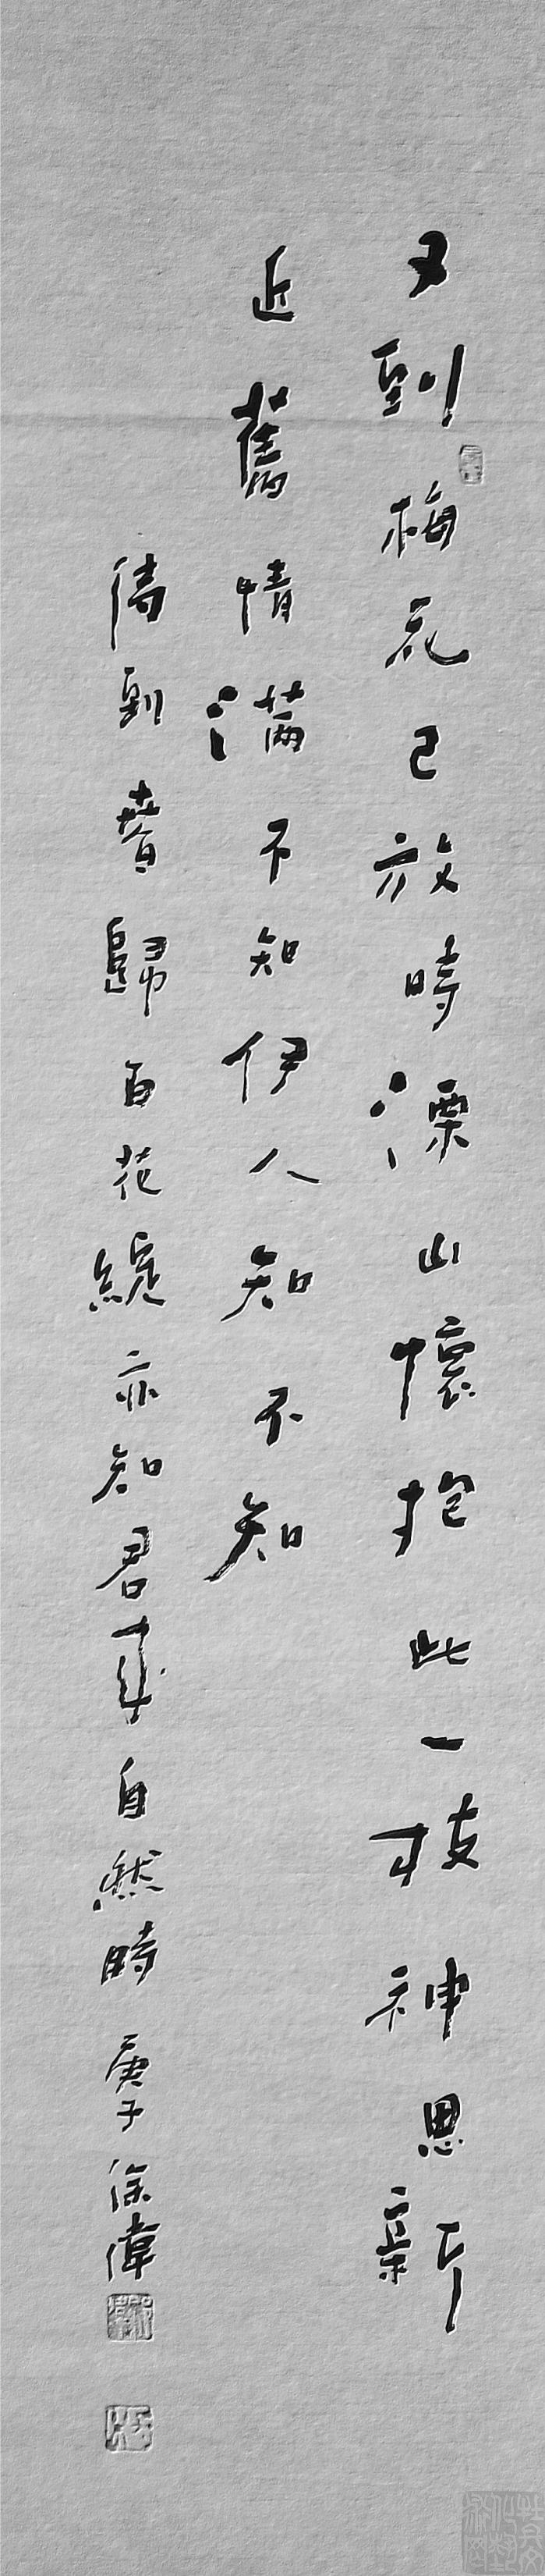 又到梅花已放時溧山懷抱此一枝神思新
近舊情滿不知伊人知不知
待到春歸百花綻亦知君来自然時 庚子 徐偉